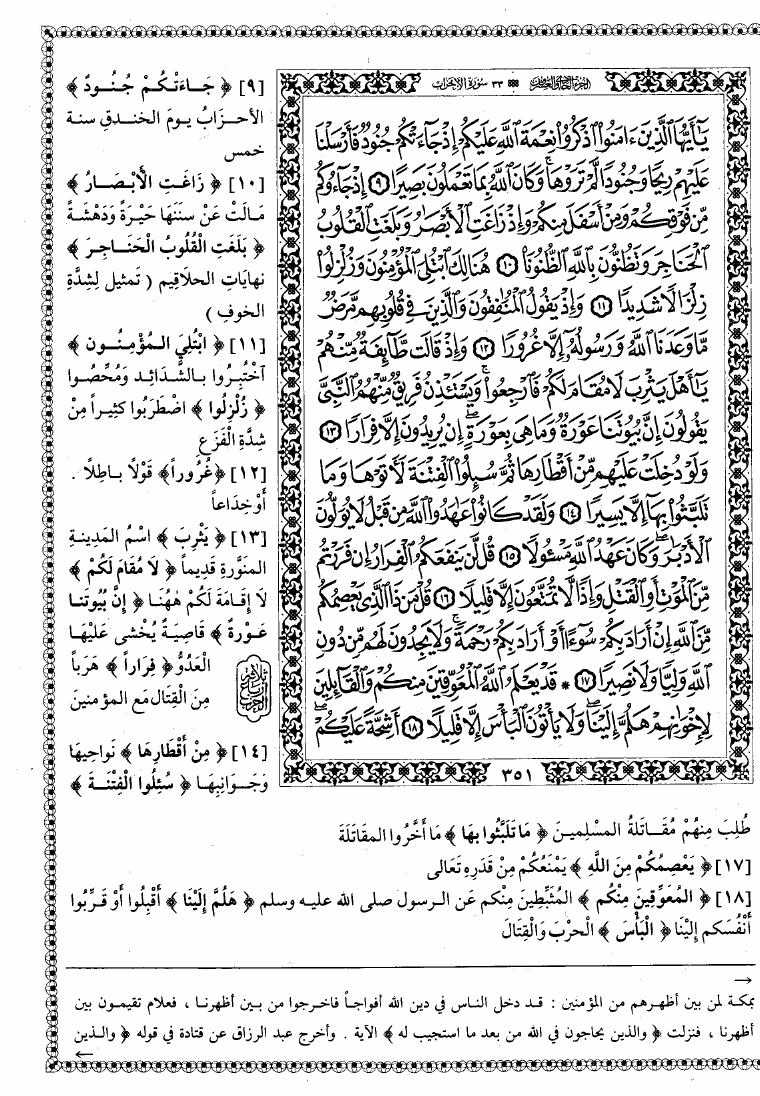 الجزء الحادي والعشرون ٣٣ سورة الأحزاب
يَٰٓأَيُّهَا ٱلَّذِينَ ءَامَنُوا۟ ٱذْكُرُوا۟ نِعْمَةَ ٱللَّهِ عَلَيْكُمْ إِذْ جَآءَتْكُمْ جُنُودٌ فَأَرْسَلْنَا
عَلَيْهِمْ رِيحًا وَجُنُودًا لَّمْ تَرَوْهَا ۚ وَكَانَ ٱللَّهُ بِمَا تَعْمَلُونَ بَصِيرًا ٩ إِذْ جَآءُوكُم
مِّن فَوْقِكُمْ وَمِنْ أَسْفَلَ مِنكُمْ وَإِذْ زَاغَتِ ٱلْأَبْصَٰرُ وَبَلَغَتِ ٱلْقُلُوبُ
ٱلْحَنَاجِرَ وَتَظُنُّونَ بِٱللَّهِ ٱلظُّنُونَا۠ ١٠ هُنَالِكَ ٱبْتُلِىَ ٱلْمُؤْمِنُونَ وَزُلْزِلُوا۟
زِلْزَالًا شَدِيدًا ١١ وَإِذْ يَقُولُ ٱلْمُنَٰفِقُونَ وَٱلَّذِينَ فِى قُلُوبِهِم مَّرَضٌ
مَّا وَعَدَنَا ٱللَّهُ وَرَسُولُهُۥٓ إِلَّا غُرُورًا ١٢ وَإِذْ قَالَت طَّآئِفَةٌ مِّنْهُمْ
يَٰٓأَهْلَ يَثْرِبَ لَا مُقَامَ لَكُمْ فَٱرْجِعُوا۟ ۚ وَيَسْتَـْٔذِنُ فَرِيقٌ مِّنْهُمُ ٱلنَّبِىَّ
يَقُولُونَ إِنَّ بُيُوتَنَا عَوْرَةٌ وَمَا هِىَ بِعَوْرَةٍ ۖ إِن يُرِيدُونَ إِلَّا فِرَارًا ١٣
وَلَوْ دُخِلَتْ عَلَيْهِم مِّنْ أَقْطَارِهَا ثُمَّ سُئِلُوا۟ ٱلْفِتْنَةَ لَءَاتَوْهَا وَمَا
تَلَبَّثُوا۟ بِهَآ إِلَّا يَسِيرًا ١٤ وَلَقَدْ كَانُوا۟ عَٰهَدُوا۟ ٱللَّهَ مِن قَبْلُ لَا يُوَلُّونَ
ٱلْأَدْبَٰرَ ۚ وَكَانَ عَهْدُ ٱللَّهِ مَسْـُٔولًا ١٥ قُل لَّن يَنفَعَكُمُ ٱلْفِرَارُ إِن فَرَرْتُم
مِّنَ ٱلْمَوْتِ أَوِ ٱلْقَتْلِ وَإِذًا لَّا تُمَتَّعُونَ إِلَّا قَلِيلًا ١٦ قُلْ مَن ذَا ٱلَّذِى يَعْصِمُكُم
مِّنَ ٱللَّهِ إِنْ أَرَادَ بِكُمْ سُوٓءًا أَوْ أَرَادَ بِكُمْ رَحْمَةً ۚ وَلَا يَجِدُونَ لَهُم مِّن دُونِ
ٱللَّهِ وَلِيًّا وَلَا نَصِيرًا ١٧ ۞ قَدْ يَعْلَمُ ٱللَّهُ ٱلْمُعَوِّقِينَ مِنكُمْ وَٱلْقَآئِلِينَ
لِإِخْوَٰنِهِمْ هَلُمَّ إِلَيْنَا ۖ وَلَا يَأْتُونَ ٱلْبَأْسَ إِلَّا قَلِيلًا ١٨ أَشِحَّةً عَلَيْكُمْ ۖ
٣٥١
[٩] ﴿ جَاءَتْكُمْ جُنُودٌ ﴾
الأحزَابُ يومَ الخندقِ سنة
خمس
[١٠] ﴿ زَاغَتِ الْأَبْصَارُ ﴾
مَالَتْ عَنْ سَنَنِهَا حَيْرَةً وَدَهْشَةً
﴿ بَلَغَتِ الْقُلُوبُ الْحَنَاجِرَ ﴾
نهايَاتِ الحلاقِيم ( تَمثيل لِشِدَّةِ
الخوفِ )
[١١] ﴿ ابْتُلِيَ الـمُؤْمِنُون ﴾
آخْتُبِرُوا بالشَّدَائِد وَمُحِّصُوا
﴿ زُلْزِلُوا ﴾ اضْطَرَبُوا كَثِيراً مِنْ
شِدَّةِ الْفَزَع
[١٢] ﴿غُرُوراً﴾ قَوْلاً بـاطِلاً .
أَوْ خِدَاعاً
[١٣] ﴿ يَثْرِبَ ﴾ اسْمُ المَدِينـةِ
المنَوَّرةِ قَدِيماً ﴿ لَا مُقَامَ لَكُمْ ﴾
لَا إِقَامَةَ لَكُمْ هٰهُنَا ﴿ إِنَّ بُيُوتَنا
عَوْرةٌ ﴾ قَاصِيَةٌ يُخْشى عَلَيْهَا
الْعَدُوُّ ﴿ فِرَاراً ﴾ هَرَباً
مِنَ الْقِتَالِ مَع المؤمنين
ثلاثة أرباع الحزب
[١٤] ﴿ مِنْ أَقْطَارِهَا ﴾ نَواحِيهَا
وَجَوَانِبِهَا ﴿ سُئِلُوا الْفِتْنَةَ ﴾
طُلِبَ مِنهُمْ مُقَـاتلَةُ المسْلِمِينَ ﴿ مَا تَلَبَّثُوا بِهَا ﴾ مَا أَخَّرُوا المقاتَلَةَ
[١٧] ﴿ يَعْصِمُكُمْ مِنَ اللَّهِ ﴾ يَمْنَعُكُمْ مِنْ قَدَرِهِ تَعَالى
[١٨] ﴿ المُعَوِّقِينَ مِنْكُم ﴾ المُثَبِّطِينَ مِنْكُم عَن الـرسول صلى الله عليـه وسلم ﴿ هَلُمَّ إِلَيْنَا ﴾ أَقْبِلُوا أَوْ قَـرِّبُوا
أَنْفُسَكم إِلَيْنَا ﴿ الْبَأْسَ ﴾ الْحرْبَ وَالْقِتَالَ
بمكة لمن بين أظهـرهم من المؤمنين : قـد دخل الناس في دين الله أفواجـاً فاخـرجوا من بـين أظهرنـا ، فعلام تقيمـون بين
أظهرنا ، فنزلت ﴿ والذين يحاجون في الله من بعد ما استجيب له ﴾ الآية . وأخرج عبد الرزاق عن قتادة في قوله ﴿ والـذين